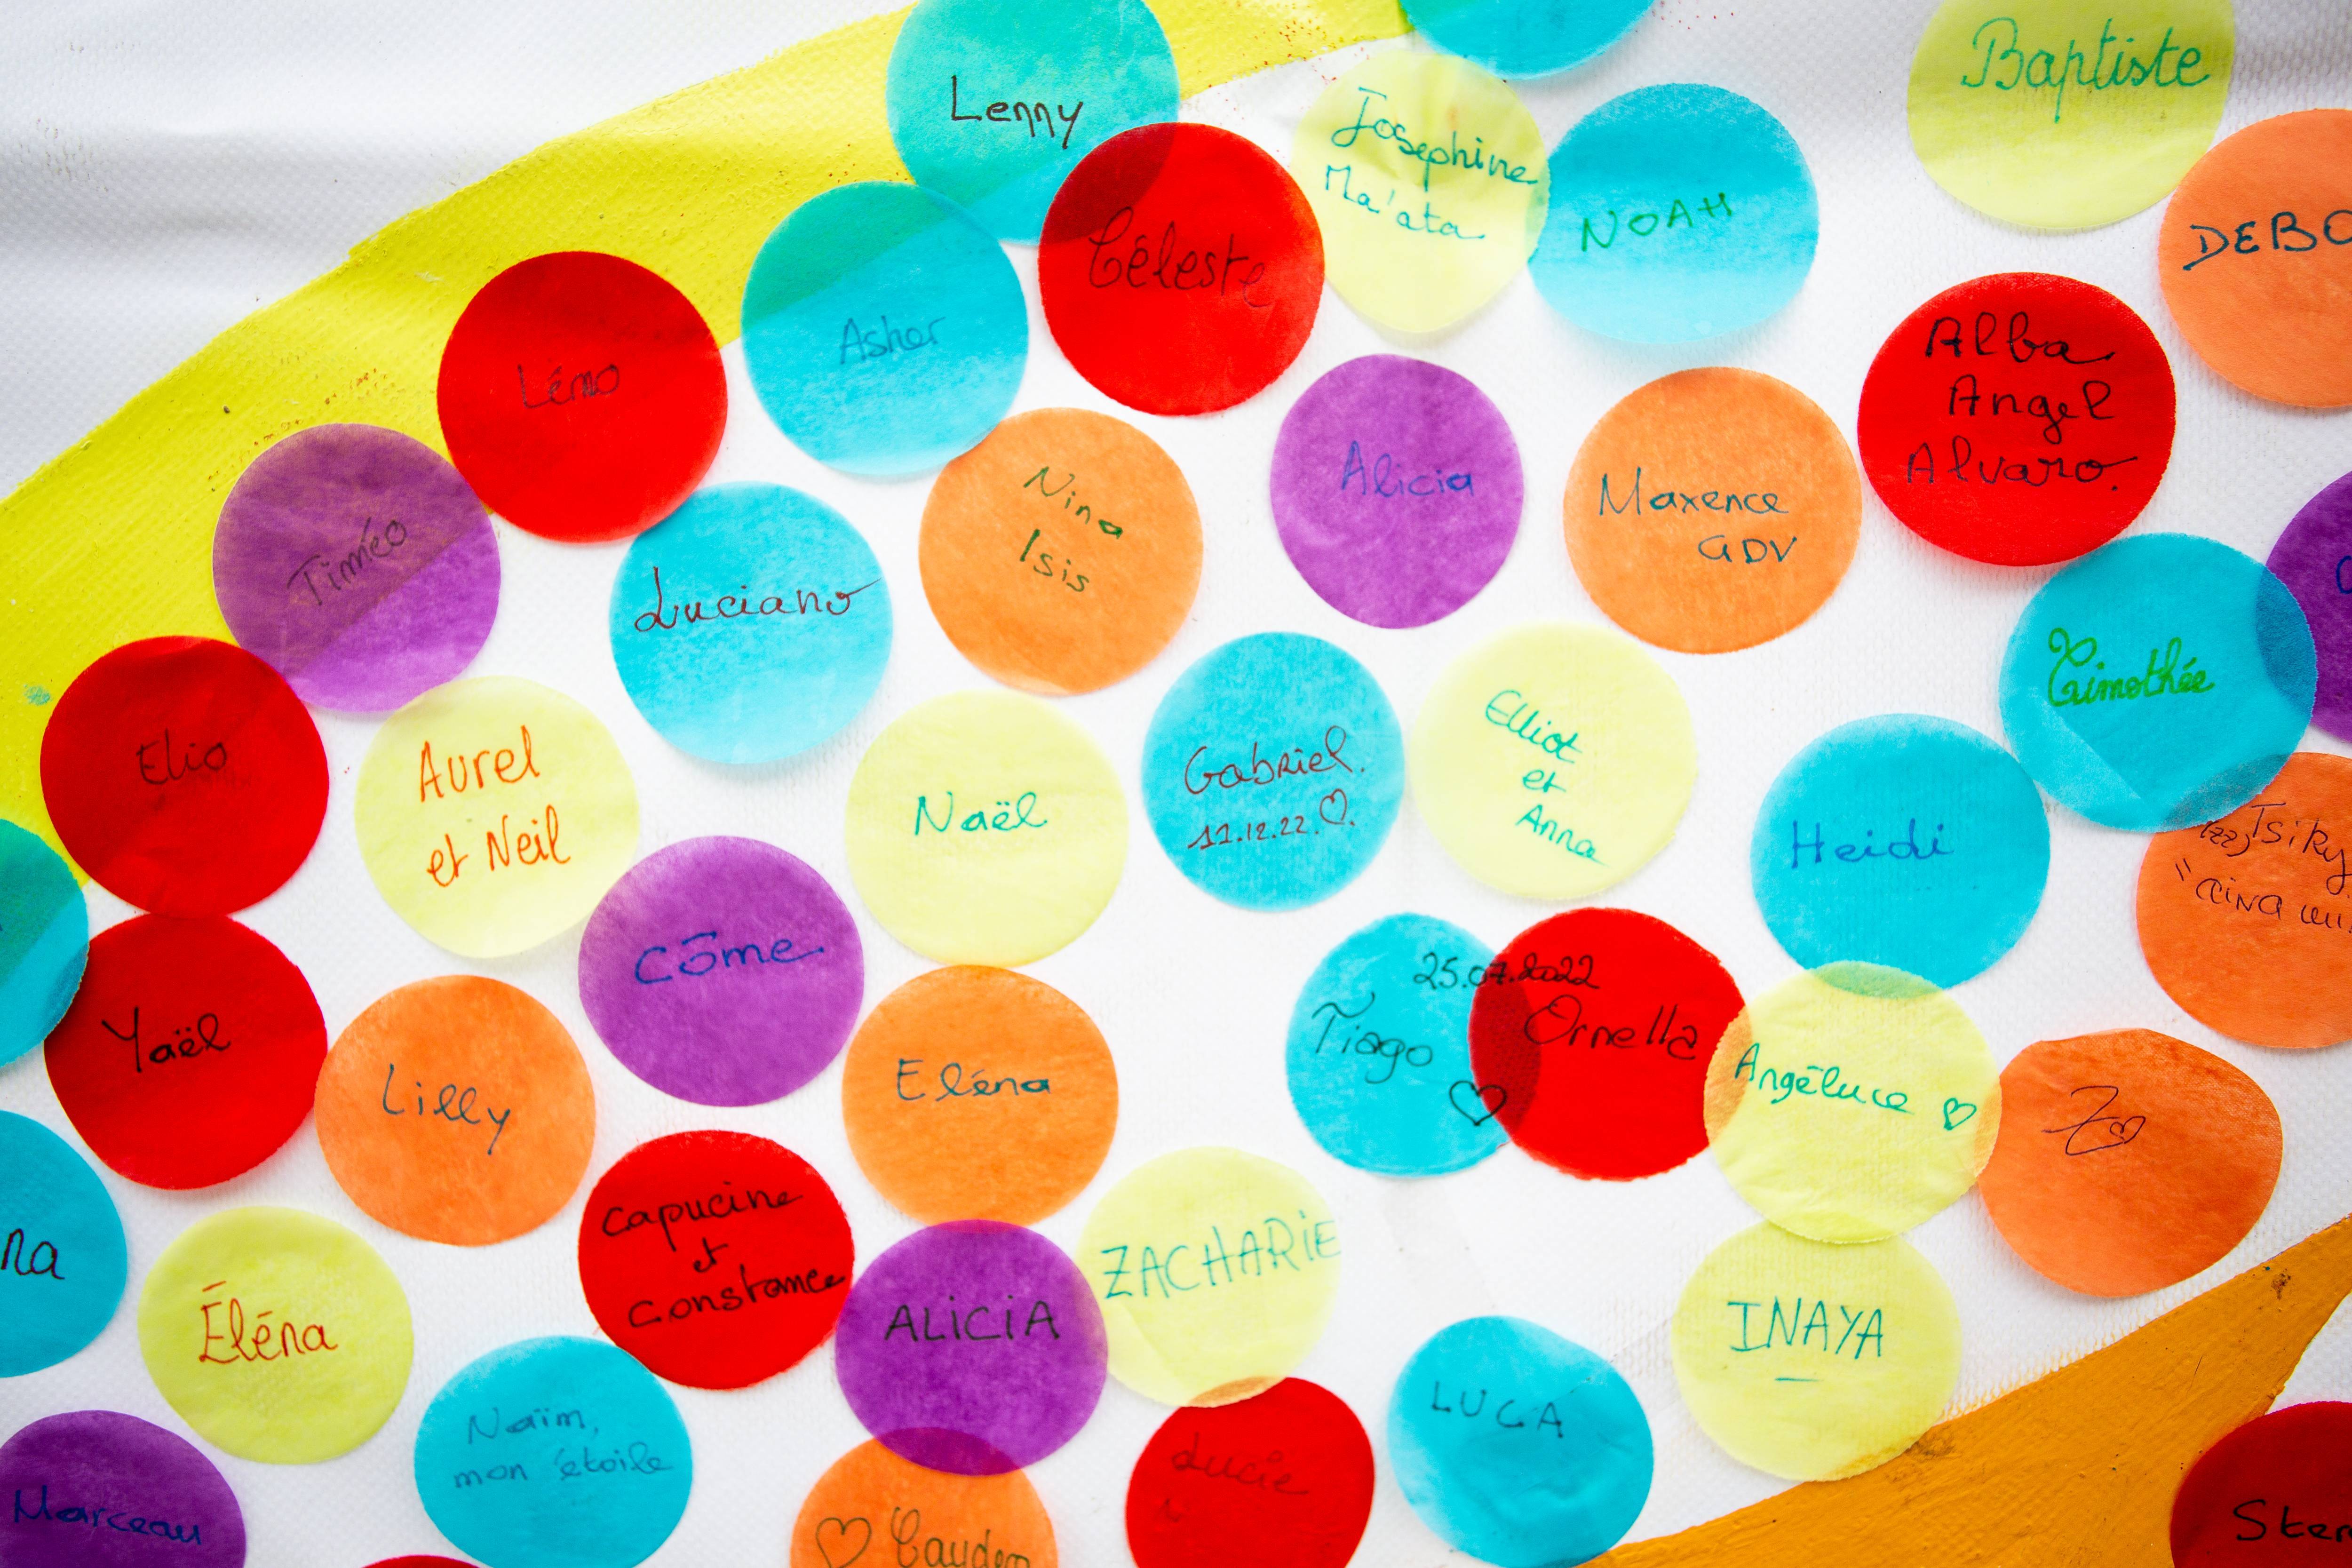 Lenny
Baptiste
Josephine
Ma'ata
NOAH
DEBO
Céleste
Asher
Léno
Alba
Angel
Alvaro.
Alicia
Maxence
GDV
Nina
Isis
Timéo
Luciano
Timothée
Elio
Aurel
et Neil
Naël
Gabriel.
11.12.22.♡.
Elliot
et
Anna
Heidi
Tsiky
Côme
25.07.2022
Tiago
♡
Ornella
Yaël
Lilly
Eléna
Angéluce ♡
Z♡
Capucine
et
Constance
na
Éléna
ALICIA
ZACHARIE
INAYA
Naïm,
mon étoile
LUCA
Lucie
Marceau
♡ Cayden
Ster